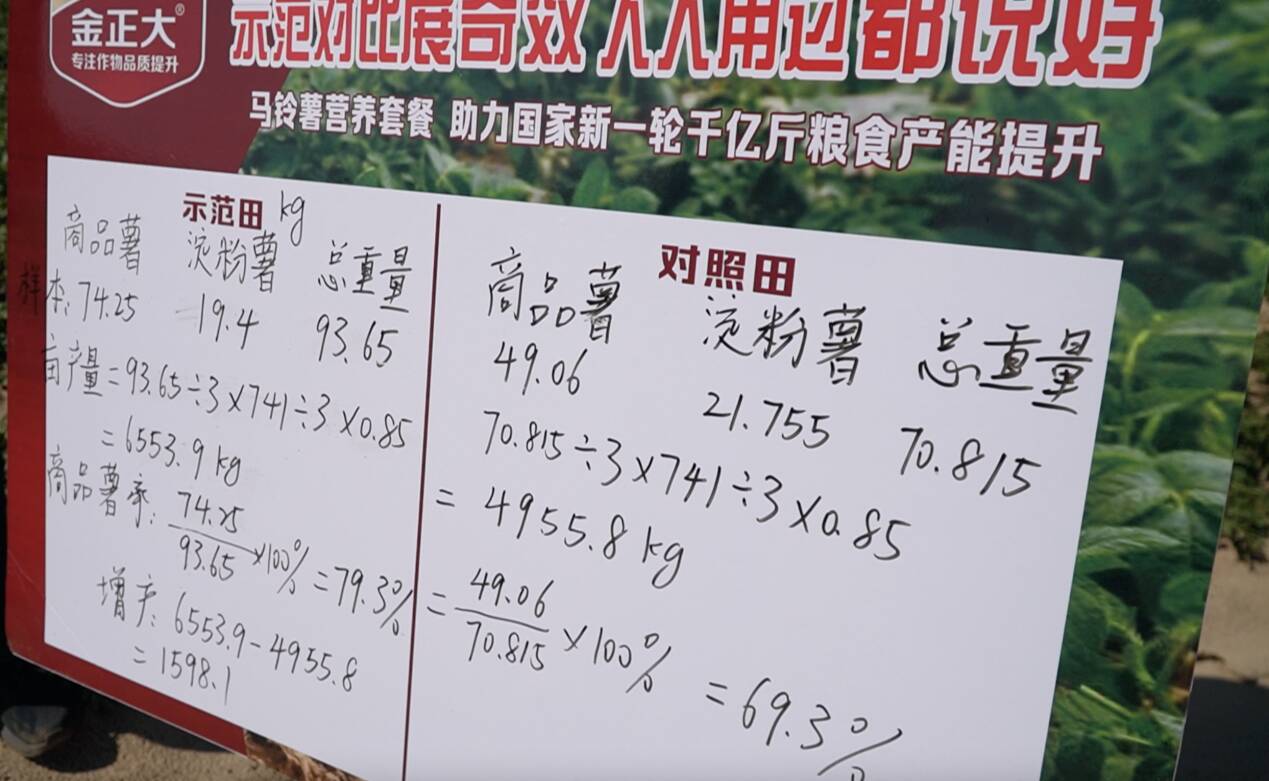 金正大®
专注作物品质提升
示范对比展奇效 人人用过都说好
马铃薯营养套餐 助力国家新一轮千亿斤粮食产能提升
示范田 kg
商品薯 淀粉薯 总重量
样本:74.25 19.4 93.65
亩产量=93.65÷3×741÷3×0.85
=6553.9kg
商品薯率:74.25/93.65×100%=79.3%
增产:6553.9-4955.8
=1598.1
对照田
商品薯 淀粉薯 总重量
49.06 21.755 70.815
70.815÷3×741÷3×0.85
=4955.8kg
=49.06/70.815×100%
=69.3%